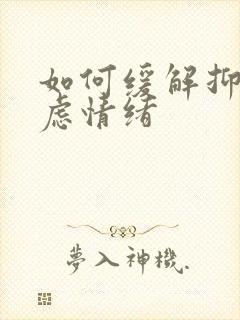 如何缓解抑
虑情绪
夢入神機.